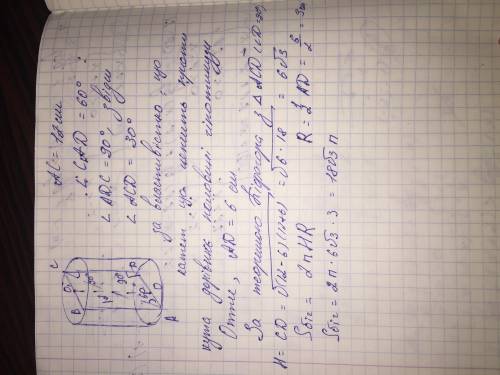 AC = 12 см
∠ CAD = 60°
∠ ADC = 90°, звідси
∠ ACD = 30°
за властивістю: що
катет, що лежить
кута дорівнює половині гіпотенузи
Отже, AD = 6 см
За теоремою Піфагора з Δ ACD (∠D = 90°)
H = CD = √(12-6)(12+6) = √6·18 = 6√3
Sбіч = 2πHR R = 1/2 AD = 6/2 = 3см
Sбіч = 2π·6√3·3 = 18√3 π
C
B
D
A
60°